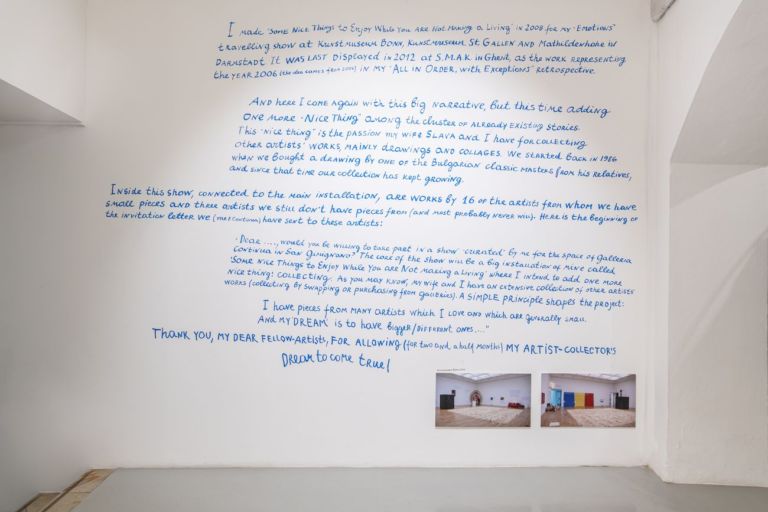 I made 'Some Nice Things to Enjoy While You Are Not Making a Living' in 2008 for my "Emotions"
travelling show at Kunstmuseum Bonn, Kunstmuseum St. Gallen and Mathildenhöhe in
Darmstadt. It was last displayed in 2012 at S.M.A.K. in Ghent, as the work representing
the year 2006 (the idea comes from 2006) in my "All in Order, with Exceptions" retrospective.
And here I come again with this big narrative, but this time adding
one more "Nice Thing" among the cluster of already existing stories.
This "nice thing" is the passion my wife Slava and I have for collecting
other artists' works, mainly drawings and collages. We started back in 1986
when we bought a drawing by one of the Bulgarian classic masters from his relatives,
and since that time our collection has kept growing.
Inside this show, connected to the main installation, are works by 16 of the artists from whom we have
small pieces and three artists we still don't have pieces from (and most probably never will). Here is the beginning of
the invitation letter we (me & Continua) have sent to these artists:
"Dear ...., would you be willing to take part in a show 'curated' by me for the space of Galleria
Continua in San Gimignano? The core of the show will be a big installation of mine called
'Some Nice Things to Enjoy While You are Not Making a Living' where I intend to add one more
nice thing: collecting. As you may know, my wife and I have an extensive collection of other artists'
works (collecting by swapping or purchasing from galleries). A simple principle shapes the project:
I have pieces from many artists which I love and which are generally small.
And my 'dream' is to have bigger/different ones...."
Thank you, my dear fellow-artists, for allowing (for two and a half months) my artist-collector's
Dream to come true!